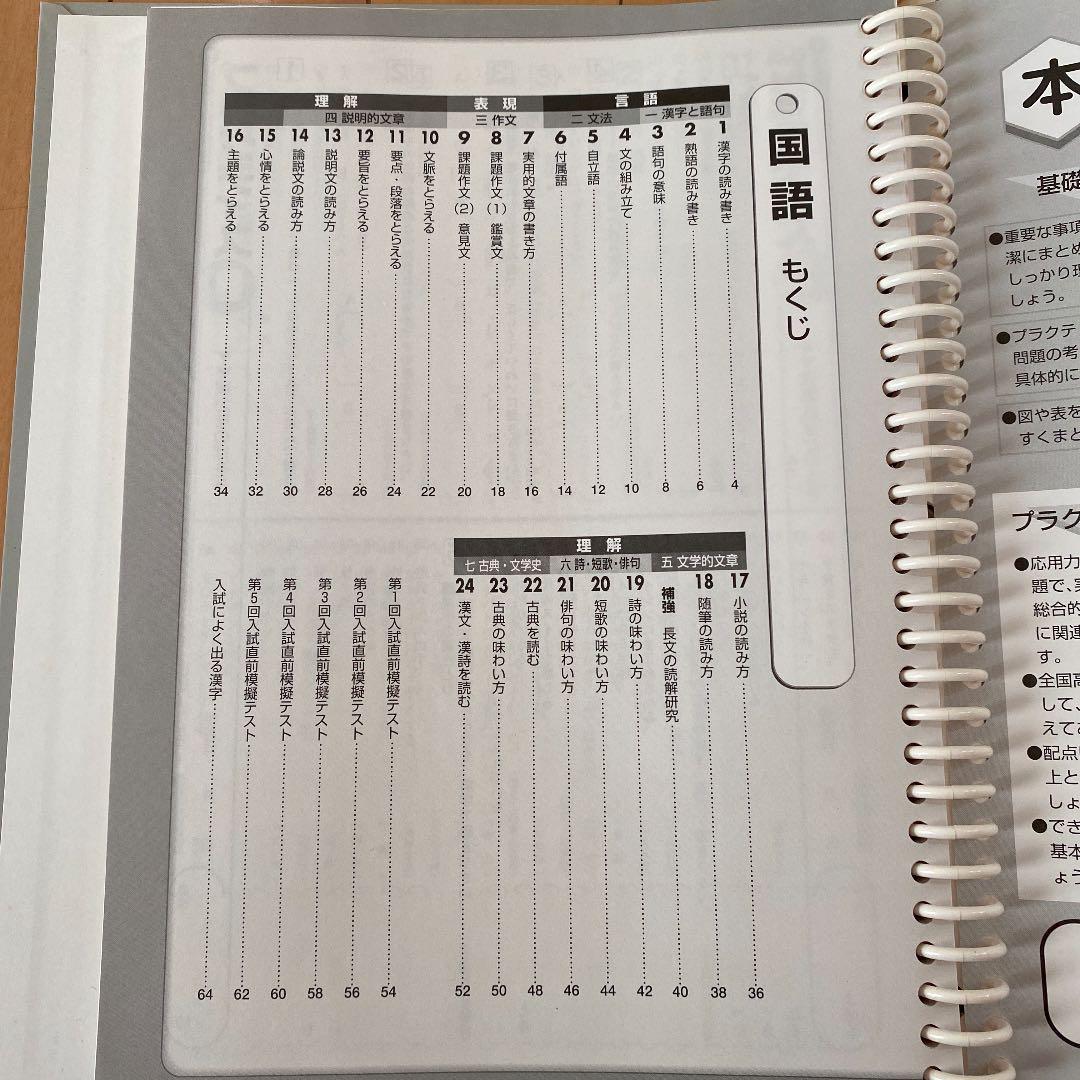 国語 もくじ
言語
一 漢字と語句
1 漢字の読み書き 4
2 熟語の読み書き 6
3 語句の意味 8
二 文法
4 文の組み立て 10
5 自立語 12
6 付属語 14
表現
三 作文
7 実用的文章の書き方 16
8 課題作文(1) 鑑賞文 18
9 課題作文(2) 意見文 20
理解
四 説明的文章
10 文脈をとらえる 22
11 要点・段落をとらえる 24
12 要旨をとらえる 26
13 説明文の読み方 28
14 論説文の読み方 30
15 心情をとらえる 32
16 主題をとらえる 34
理解
五 文学的文章
17 小説の読み方 36
18 随筆の読み方 38
補強 長文の読解研究 40
六 詩・短歌・俳句
19 詩の味わい方 42
20 短歌の味わい方 44
21 俳句の味わい方 46
七 古典・文学史
22 古典を読む 48
23 古典の味わい方 50
24 漢文・漢詩を読む 52
第1回入試直前模擬テスト 54
第2回入試直前模擬テスト 56
第3回入試直前模擬テスト 58
第4回入試直前模擬テスト 60
第5回入試直前模擬テスト 62
入試によく出る漢字 64
本
基礎
●重要な事項
潔にまとめ
しっかり理
しょう。
●プラクテ
問題の考
具体的に
●図や表を
すくまと
プラク
●応用力
題で、実
総合的
に関連
す。
●全国高
して、
えてあ
●配点
上と
しょ
●でき
基本
ょう